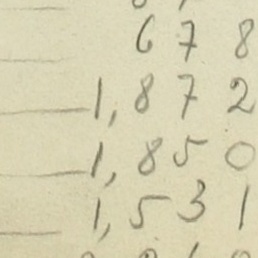 678
1,872
1,850
1,531